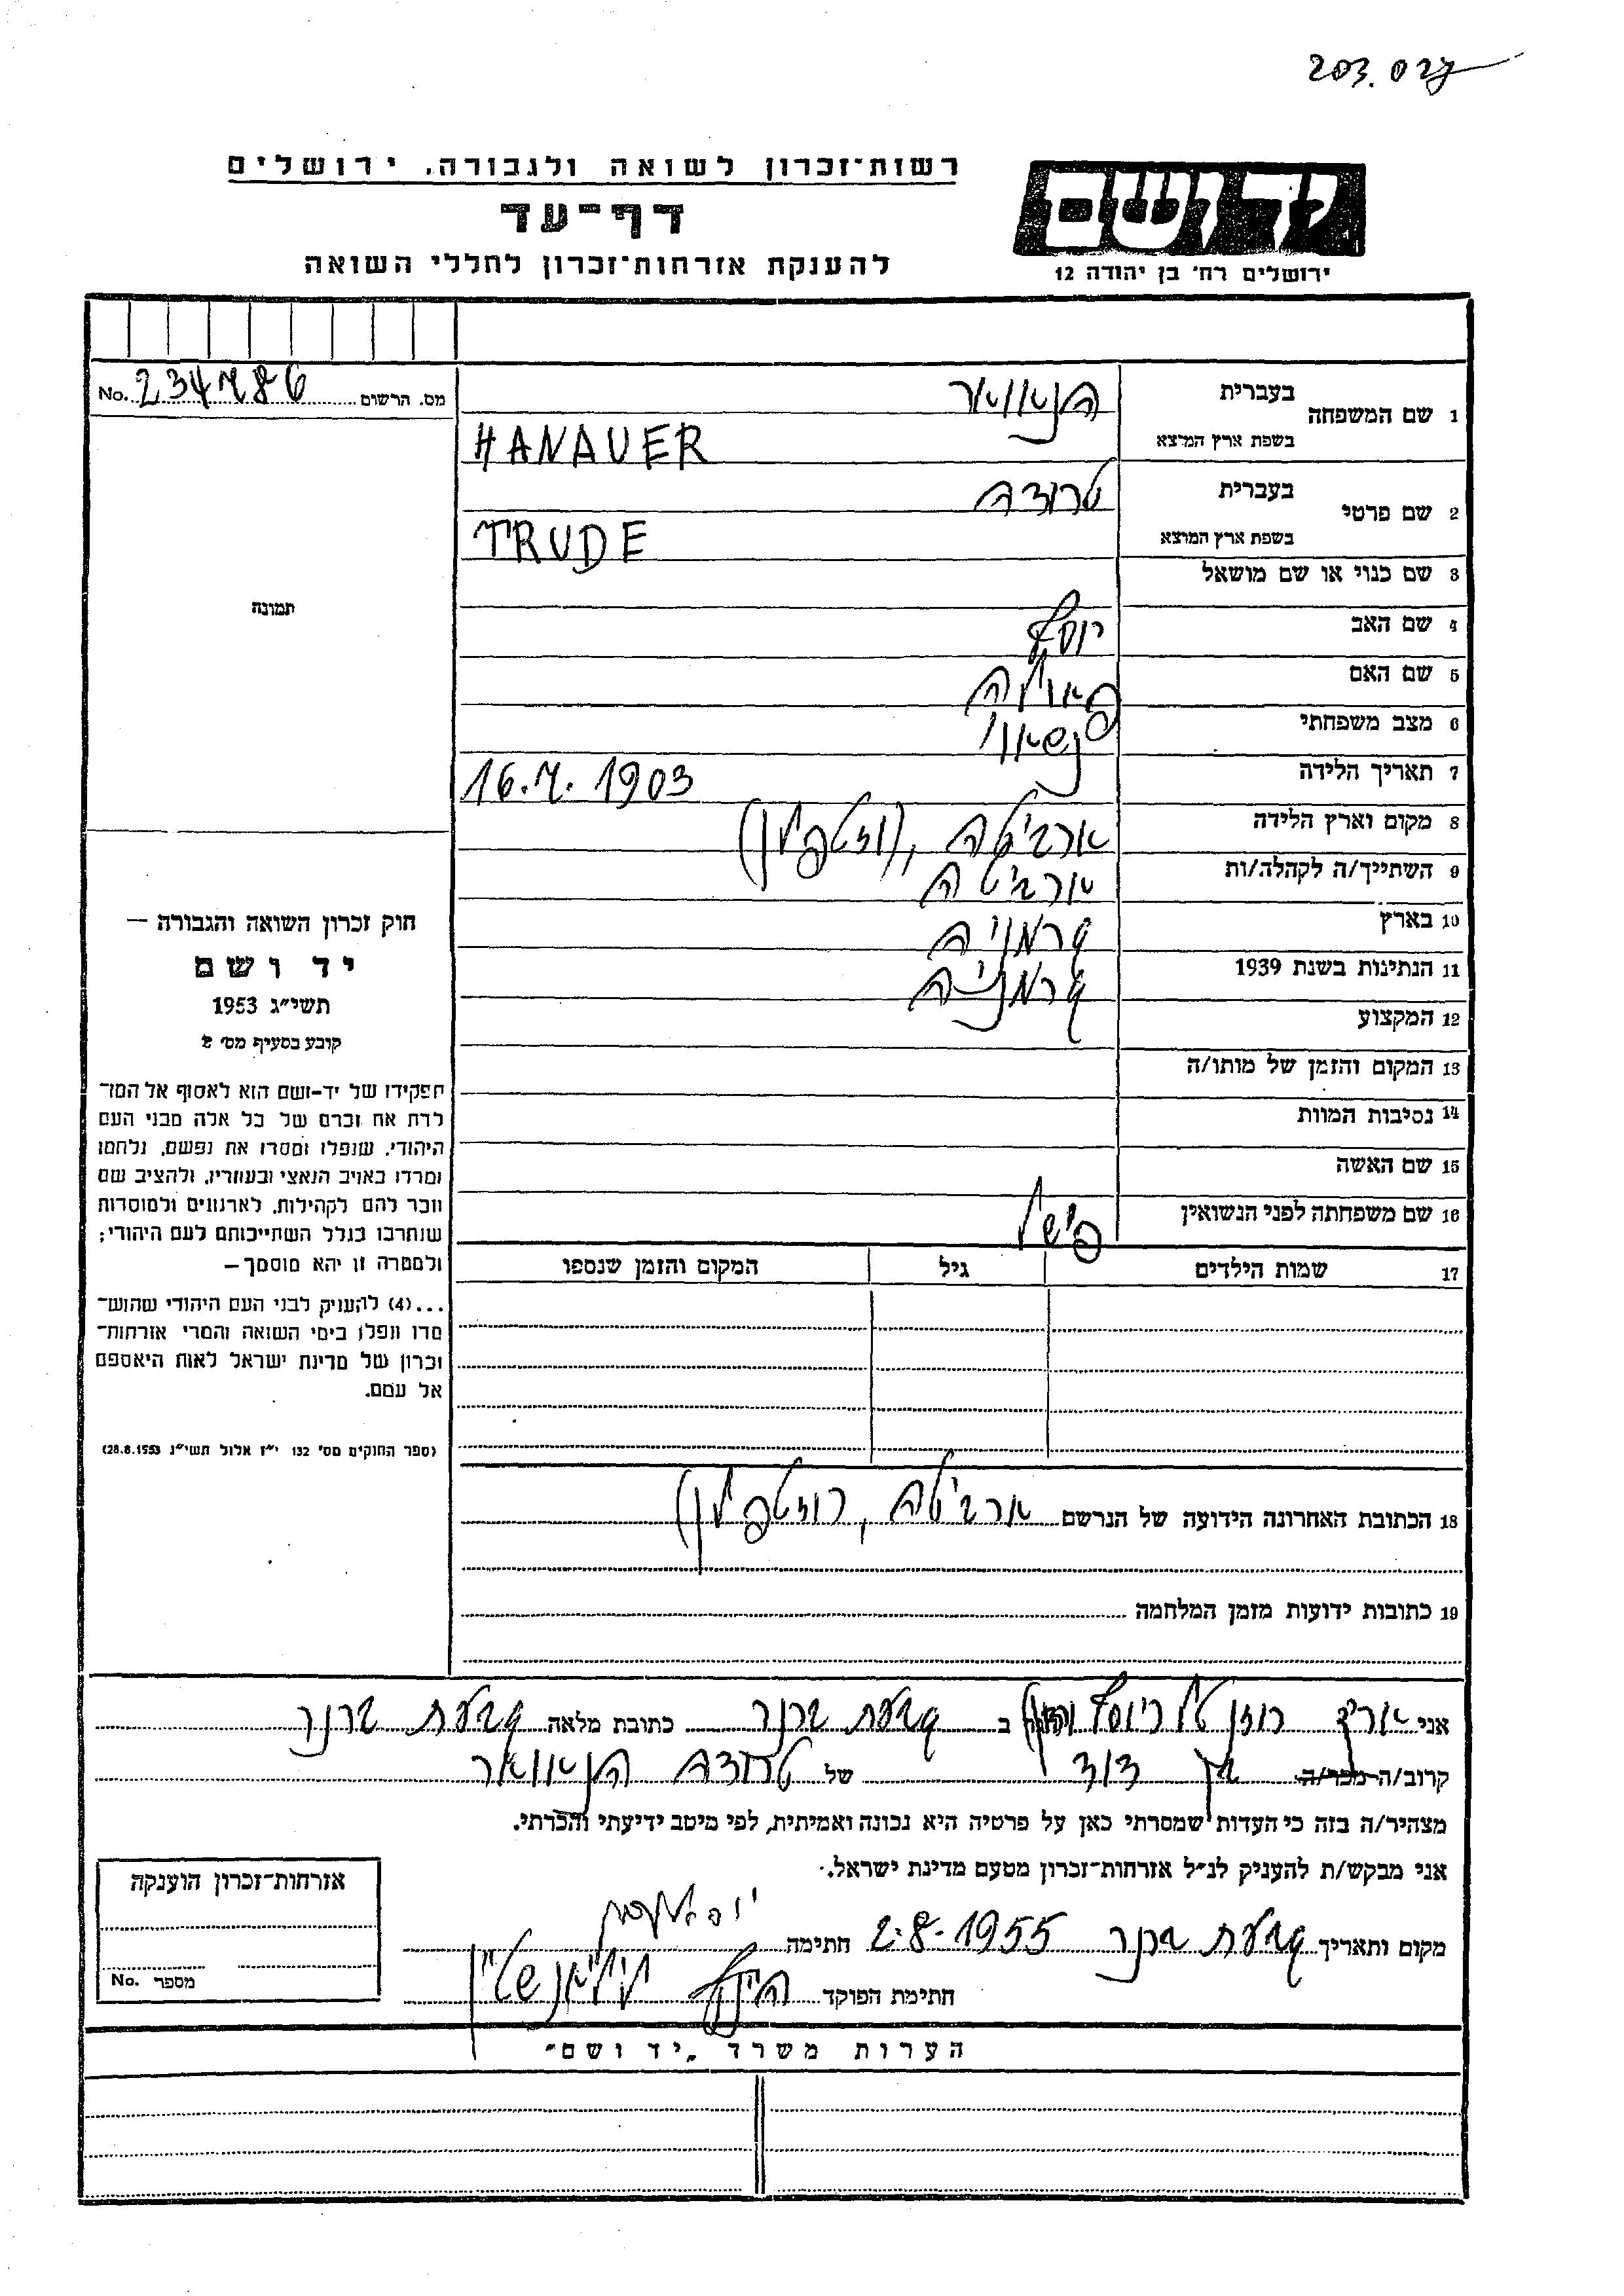 203.027
רשות־זכרון לשואה ולגבורה. ירושלים
דף־עד
להענקת אזרחות־זכרון לחללי השואה
ידושם
ירושלים רח' בן יהודה 12
No. 234786 מס. הרשום
1 שם המשפחה בעברית האנאוואר
בשפת ארץ המוצא HANAUER
2 שם פרטי בעברית טרודה
בשפת ארץ המוצא TRUDE
3 שם כנוי או שם מושאל
תמונה
4 שם האב יוסף
5 שם האם פאולה
6 מצב משפחתי נשאוי
7 תאריך הלידה 16.7.1903
8 מקום וארץ הלידה
9 השתייך/ה לקהלה/ות
10 בארץ גרמניה
11 הנתינות בשנת 1939 גרמניה
12 המקצוע
13 המקום והזמן של מותו/ה
14 נסיבות המוות
15 שם האשה
16 שם משפחתה לפני הנשואין פישל
17 שמות הילדים גיל המקום והזמן שנספו
חוק זכרון השואה והגבורה —
יד ושם
תשי״ג 1953
קובע בסעיף מס׳ 2
תפקידו של יד-ושם הוא לאסוף אל המו־
לדת את זכרם של כל אלה מבני העם
היהודי, שנפלו ומסרו את נפשם, נלחמו
ומרדו באויב הנאצי ובעוזריו, ולהציב שם
וזכר להם לקהילות, לארגונים ולמוסדות
שנחרבו בגלל השתייכותם לעם היהודי;
ולמטרה זו יהא מוסמך—
...(4) להעניק לבני העם היהודי שהוש־
מדו ונפלו בימי השואה והמרי אזרחות־
זכרון של מדינת ישראל לאות היאספם
אל עמם.
(ספר החוקים מס׳ 132 י״ז אלול תשי״ג 28.8.1953)
18 הכתובת האחרונה הידועה של הנרשם
19 כתובות ידועות מזמן המלחמה
אני ב גבעת ברנר כתובת מלאה גבעת ברנר
קרוב/ה מכר/ה בן דוד של טרודה האנאוואר
מצהיר/ה בזה כי העדות שמסרתי כאן על פרטיה היא נכונה ואמיתית, לפי מיטב ידיעתי והכרתי.
אני מבקש/ת להעניק לנ״ל אזרחות־זכרון מטעם מדינת ישראל.
מקום ותאריך גבעת ברנר 2.8.1955 חתימה
חתימת הפוקד
אזרחות־זכרון הוענקה
מספר No.
הערות משרד „יד ושם״